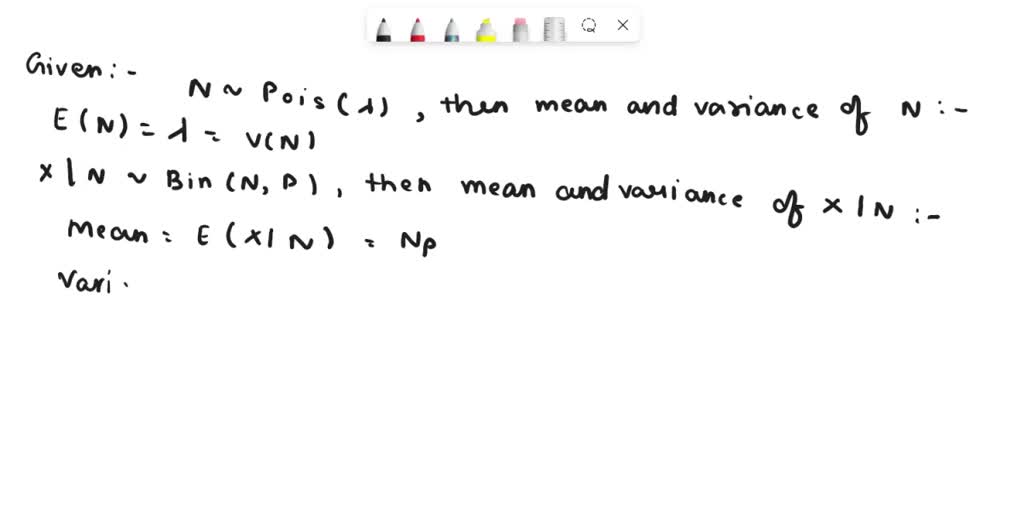 Given:-
N ~ Pois(λ), then mean and variance of N:-
E(N) = λ = V(N)
X|N ~ Bin(N, p), then mean and variance of X|N:-
Mean = E(X|N) = Np
Vari.